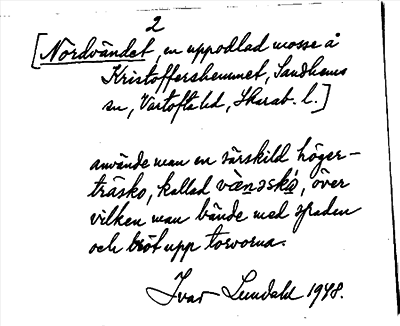 2
[Nordvändet, en uppodlad mosse å
Kristoffershemmet, Sandhems
sn, Vartofta hd, Skarab. l.]
använde man en särskild höger-
träsko, kallad vænskó, över
vilken man bände med spaden
och bröt upp torvorna.
Ivar Lundahl 1948.